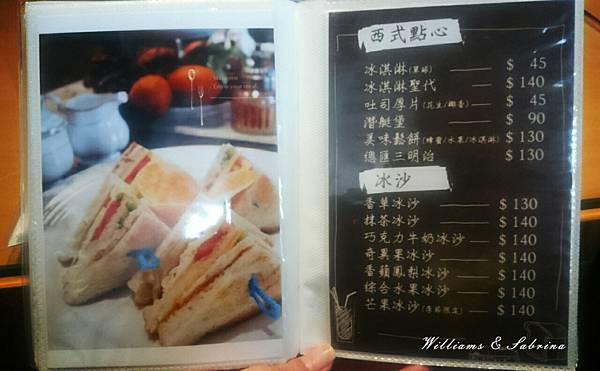 西式點心
冰淇淋(單球) $ 45
冰淇淋聖代 $ 140
吐司厚片(花生/椰香) $ 45
潛艇堡 $ 90
美味鬆餅(蜂蜜/水果/冰淇淋) $ 130
總匯三明治 $ 130
冰沙
香草冰沙 $ 130
抹茶冰沙 $ 140
巧克力牛奶冰沙 $ 140
奇異果冰沙 $ 140
香蘋鳳梨冰沙 $ 140
綜合水果冰沙 $ 140
芒果冰沙(季節限定) $ 140
Williams & Sabrina